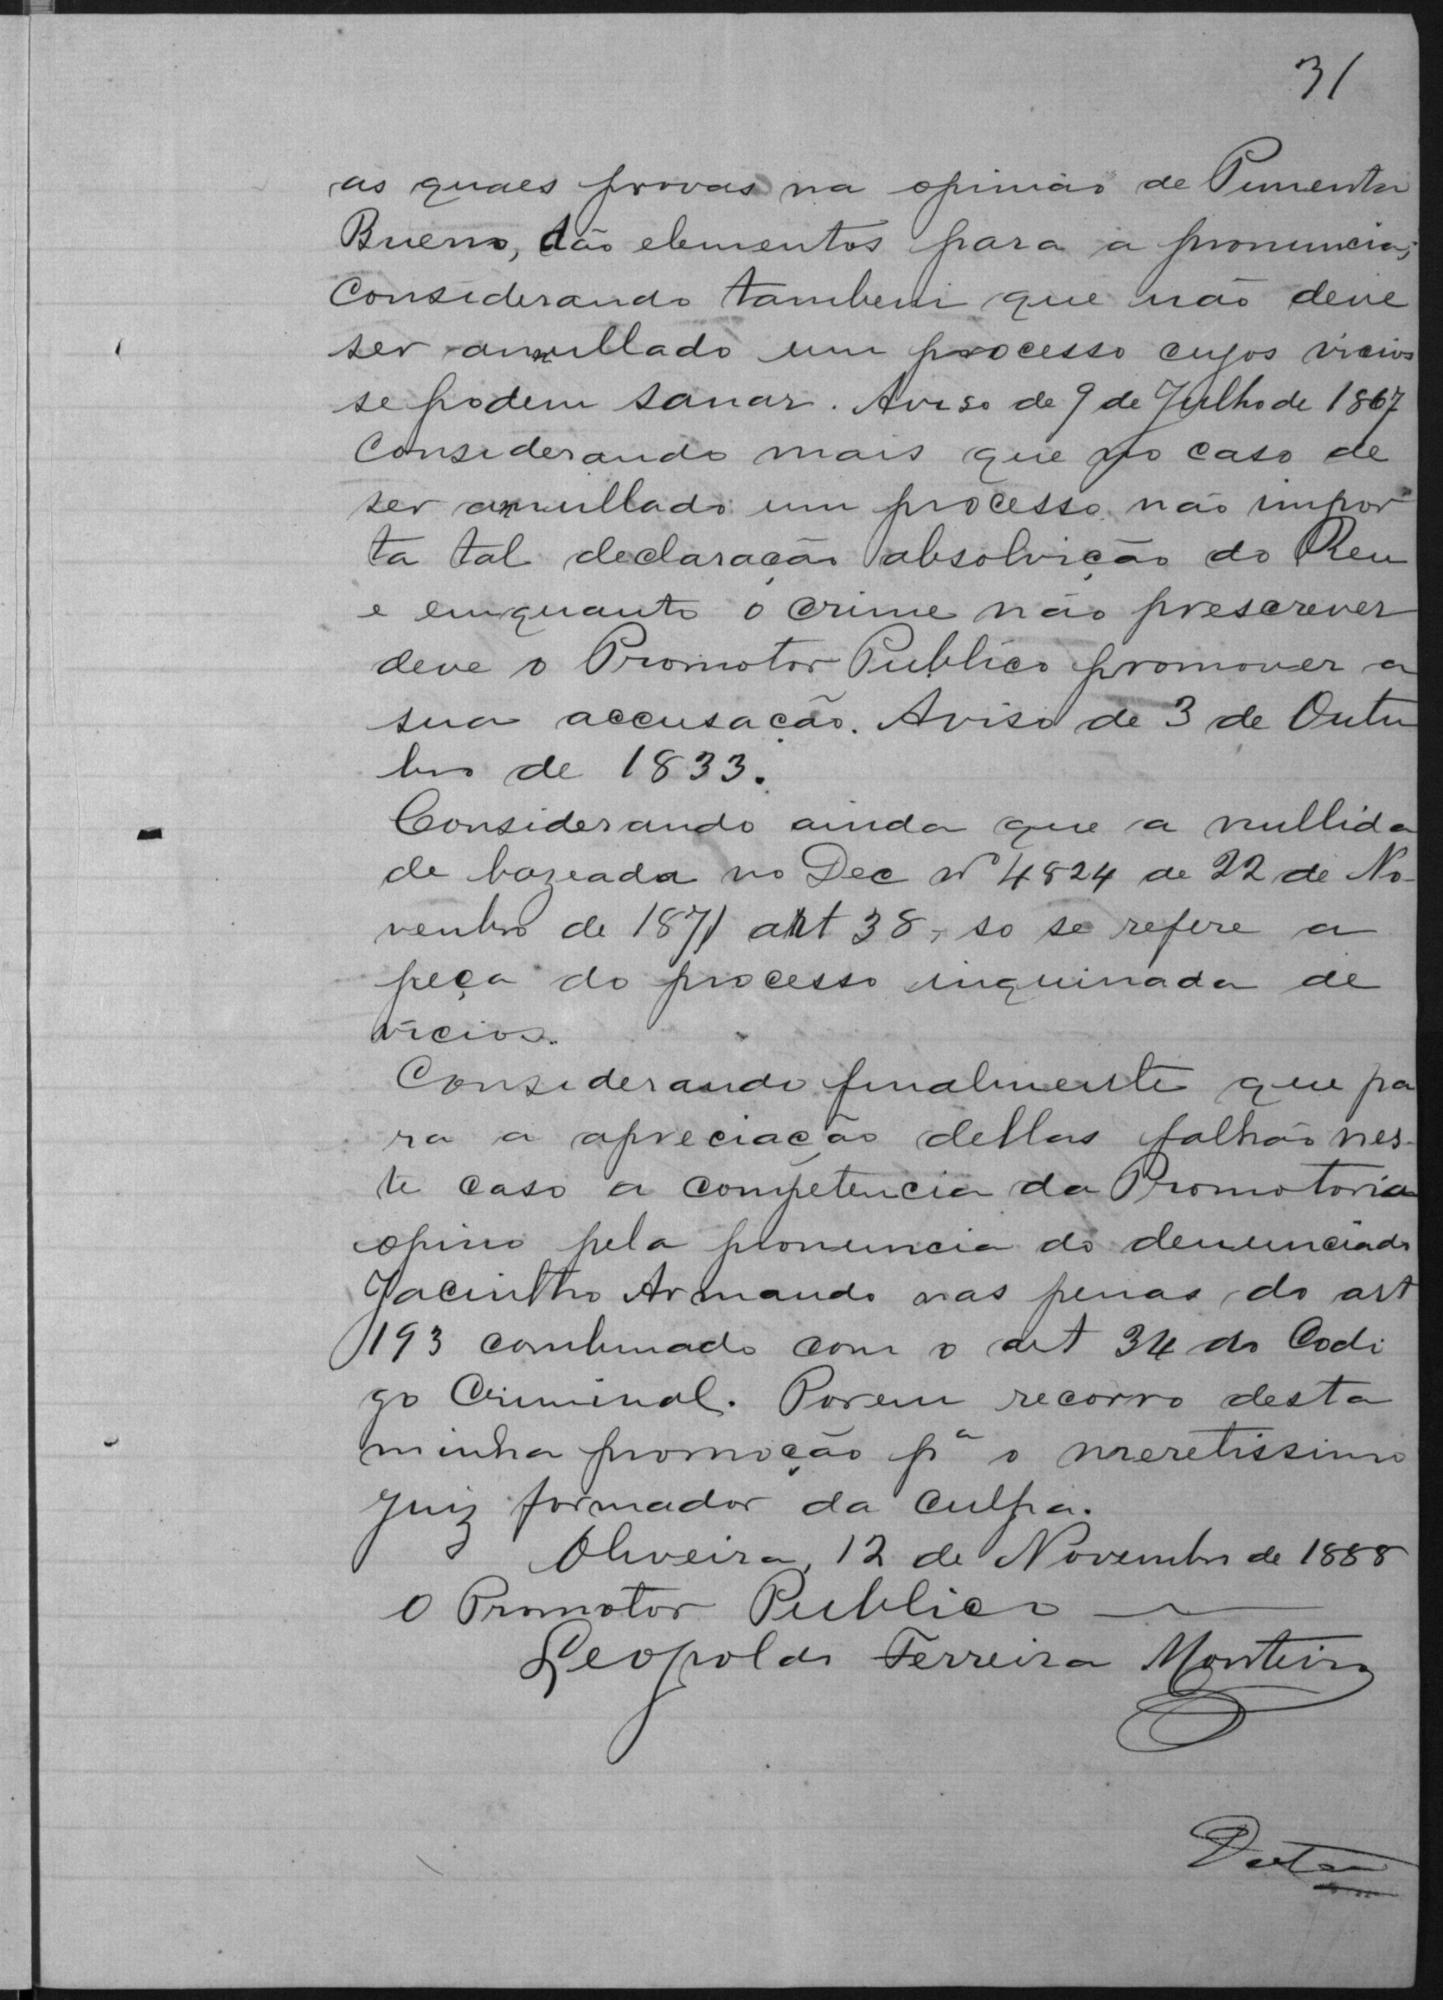 31
as quaes provas na opinião de Pimenta
Bueno, dão elementos para a pronuncia;
Considerando tambem que não deve
ser annullado um processo cujos vicios
se podem sanar. Aviso de 9 de Julho de 1867
Considerando mais que no caso de
ser annullado um processo não impor
ta tal declaração absolvição do Reu
e emquanto o crime não prescrever
deve o Promotor Publico promover a
sua accusação. Aviso de 3 de Outu
bro de 1833.
Considerando ainda que a nullida
de bazeada no Dec nº 4824 de 22 de No-
vembro de 1871 art 38, so se refere a
peça do processo inquinada de
vicios.
Considerando finalmente que pa
ra a apreciação dellas falhão nes-
te caso a competencia da Promotoria
opino pela pronuncia do denunciado
Jacintho Armando nas penas do art
193 combinado com o art 34 do Codi
go Criminal. Porem recorro desta
minha promoção pª o meretissimo
juiz formador da culpa.
Oliveira, 12 de Novembro de 1888
O Promotor Publico
Leopoldo Ferreira Monteiro
Data